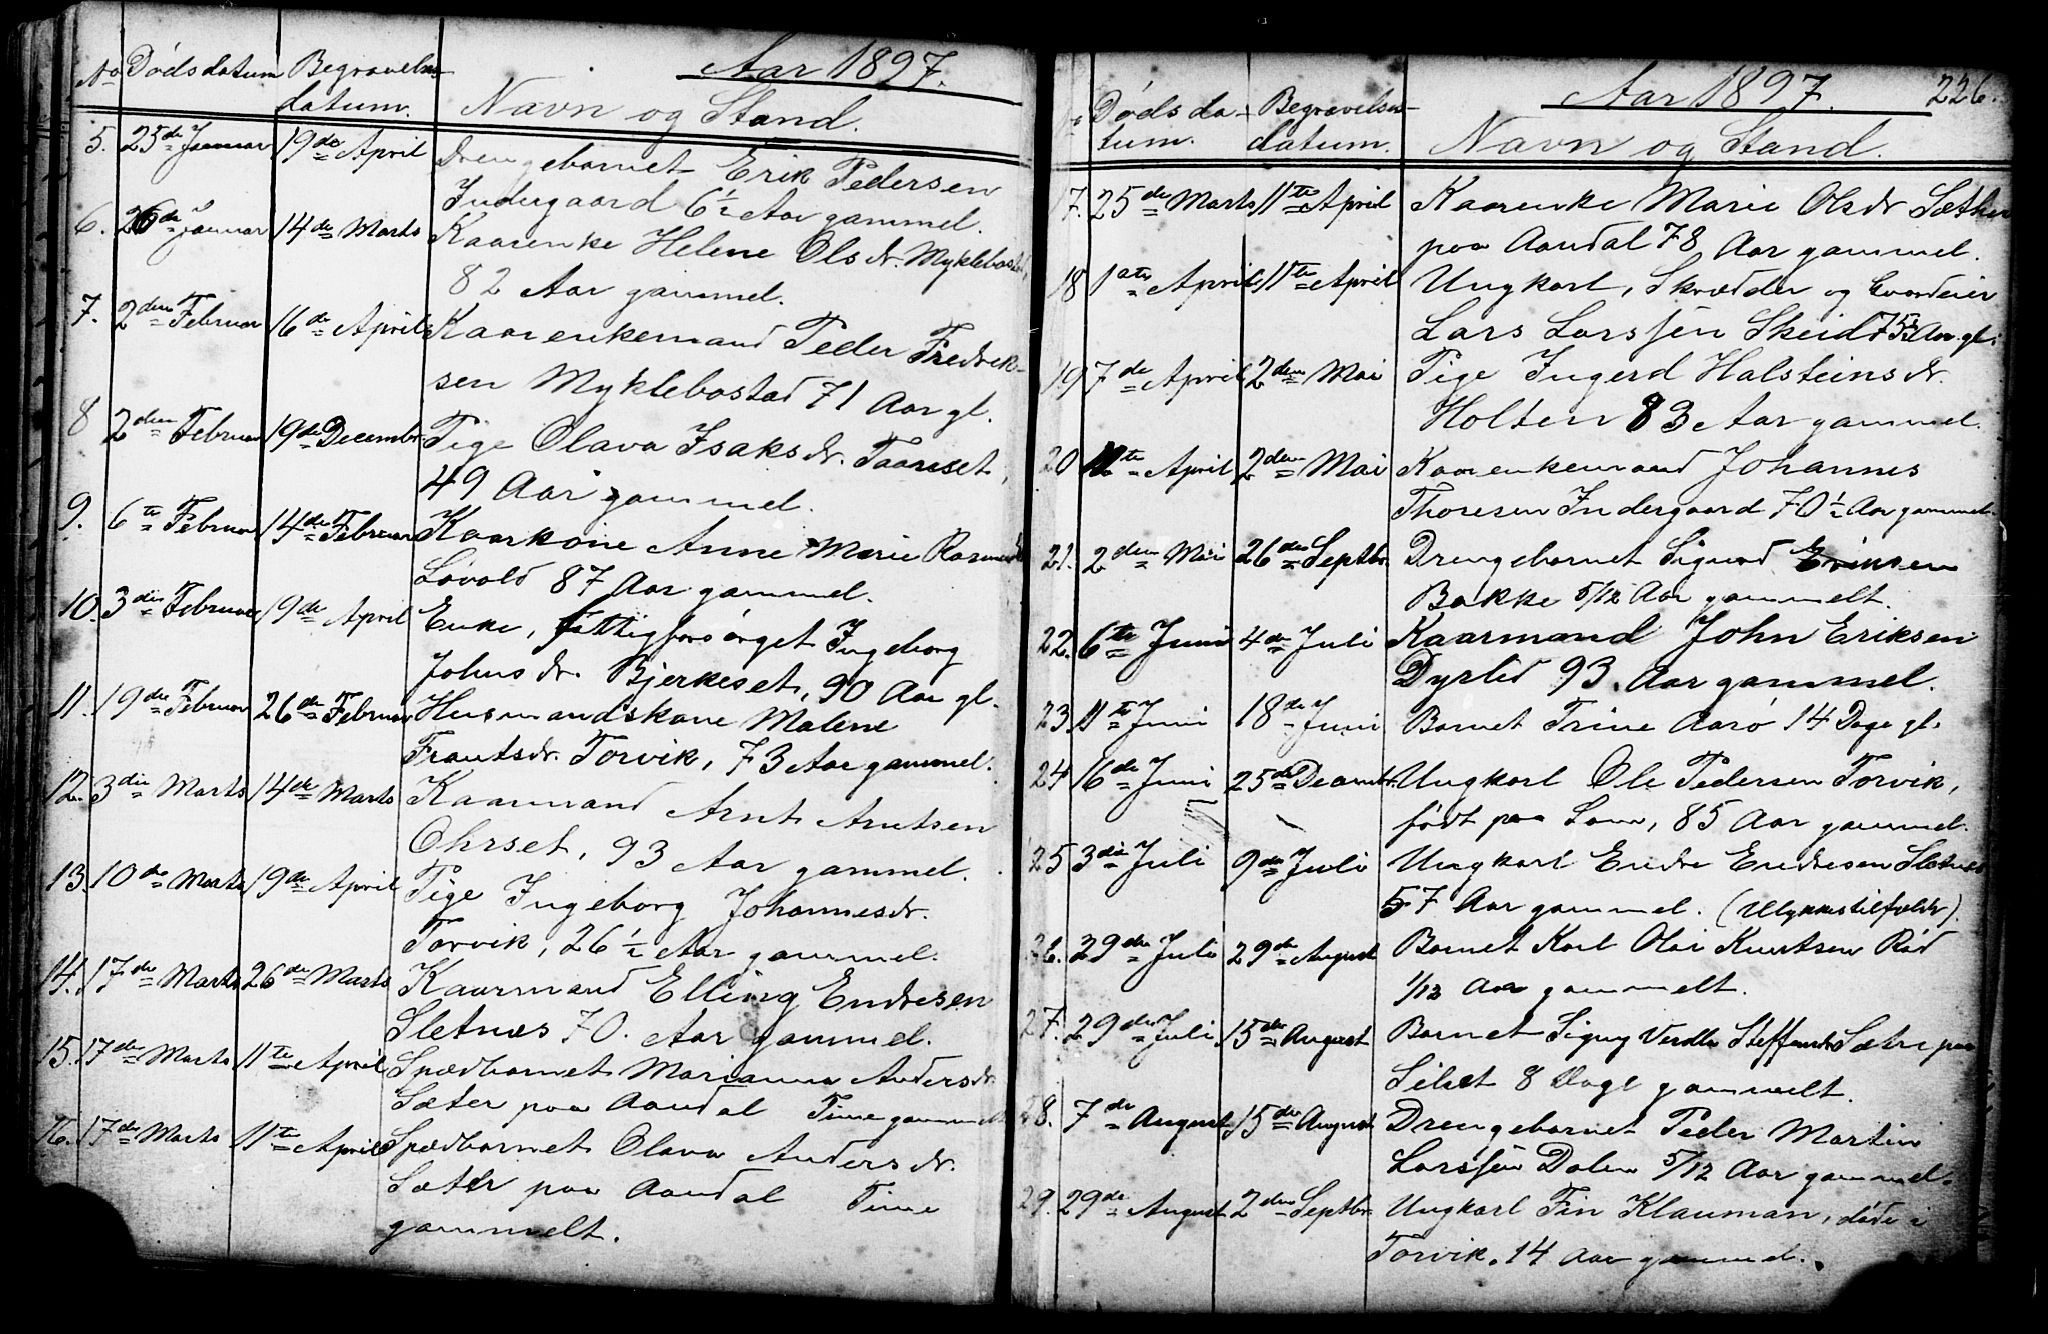 Aar 1897.
No Dödsdatum Begravelses-
datum. Navn og Stand.
5. 25de Januar 19de April Drengebarnet Erik Pedersen
Indergaard 6½ Aar gammel.
6. 26de Januar 14de Marts Kaarenke Helene Olsdr. Myklebostad,
82 Aar gammel.
7. 2den Februar 16de April Kaarenkemand Peder Fredrik-
sen Myklebostad 71 Aar gl.
8 2den Februar 19de Decembr. Pige Olava Isaksdr. Taarset,
49 Aar gammel.
9. 6te Februar 14de Februar Kaarkone Anne Marie Rasmusdr
Lövold 87 Aar gammel.
10. 3die Februar 19de April Enke, fattigforsörget Ingeborg
Johnsdr. Bjerkeset, 90 Aar gl.
11. 19de Februar 26de Februar Husmandskone Malene
Frantsdr. Torvik, 73 Aar gammel.
12. 3die Marts 14de Marts Kaarmand Arnt Arntsen
Ohrset, 93 Aar gammel.
13. 10de Marts 19de April Pige Ingeborg Johannesdr.
Torvik, 26½ Aar gammel.
14. 17de Marts 26de Marts Kaarmand Elling Endresen
Sletnes 70. Aar gammel.
15. 17de Marts 11te April Spædbarnet Marianna Andersdr.
Sæter paa Aandal Time gammelt
16. 17de Marts 11te April Spædbarnet Olava Andersdr.
Sæter paa Aandal Time
gammelt.
Aar 1897. 226.
No Dödsda- Begravelses-
tum. datum. Navn og Stand.
17. 25de Marts 11te April Kaarenke Marie Olsdr Sæther
paa Aandal 78 Aar gammel.
18 1ste April 11te April Ungkarl, Skrædder og Gaardeier
Lars Larssen Skeid 75½ Aar gl.
19 7de April 2den Mai Pige Ingerd Halsteinsdr.
Holten 83 Aar gammel.
20 11te April 2den Mai Kaarenkemand Johannes
Thoresen Indergaard 70½ Aar gammel.
21. 2den Mai 26de Septbr. Drengebarnet Sigurd Eriksen
Bakke 5/12 Aar gammelt.
22. 6te Juni 4de Juli Kaarmand John Eriksen
Dyrlid 93. Aar gammel.
23. 11te Juni 18de Juni Barnet Trine Aarö 14 Dage gl.
24 16de Juni 25de Decembr. Ungkarl Ole Pedersen Torvik,
födt paa Lom, 85 Aar gammel.
25 3die Juli 9de Juli Ungkarl Endre Endresen Sletnes
57 Aar gammel. (Ulykkestilfælde).
26. 29de Juli 29de August Barnet Karl Olai Knutsen Röd
1/12 Aar gammelt.
27. 29de Juli 15de August Barnet Signy Steffensdr Sætre paa
Silset 8 Dage gammelt.
28. 7de August 15de August Drengebarnet Peder Martin
Larssen Dalen 5/12 Aar gammel.
29. 29de August 2den Septbr. Ungkarl Fin Klauman, döde i
Torvik. 14 Aar gammel.